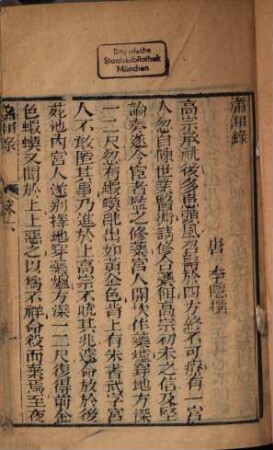 Bayerische
Staatsbibliothek
München
瀟湘錄
唐 李應撰
高宗承祧後多患頭風召醫於四方終不可療有一宮
人忽自陳世業醫術請修合藥餌高宗初未之信及堅
論奏遂令宦者監之修藥宮人開坎作藥爐穿地方深
一二尺忽有蝦蟆跳出如黃金色背上有朱書武字宮
人不敢匿其事乃進於上高宗不曉其兆遽命放於後
苑池內宮人遂別擇地穿藥爐方深一二尺復得前金
色蝦蟆又聞於上上惡之以爲不祥命殺而棄焉至夜